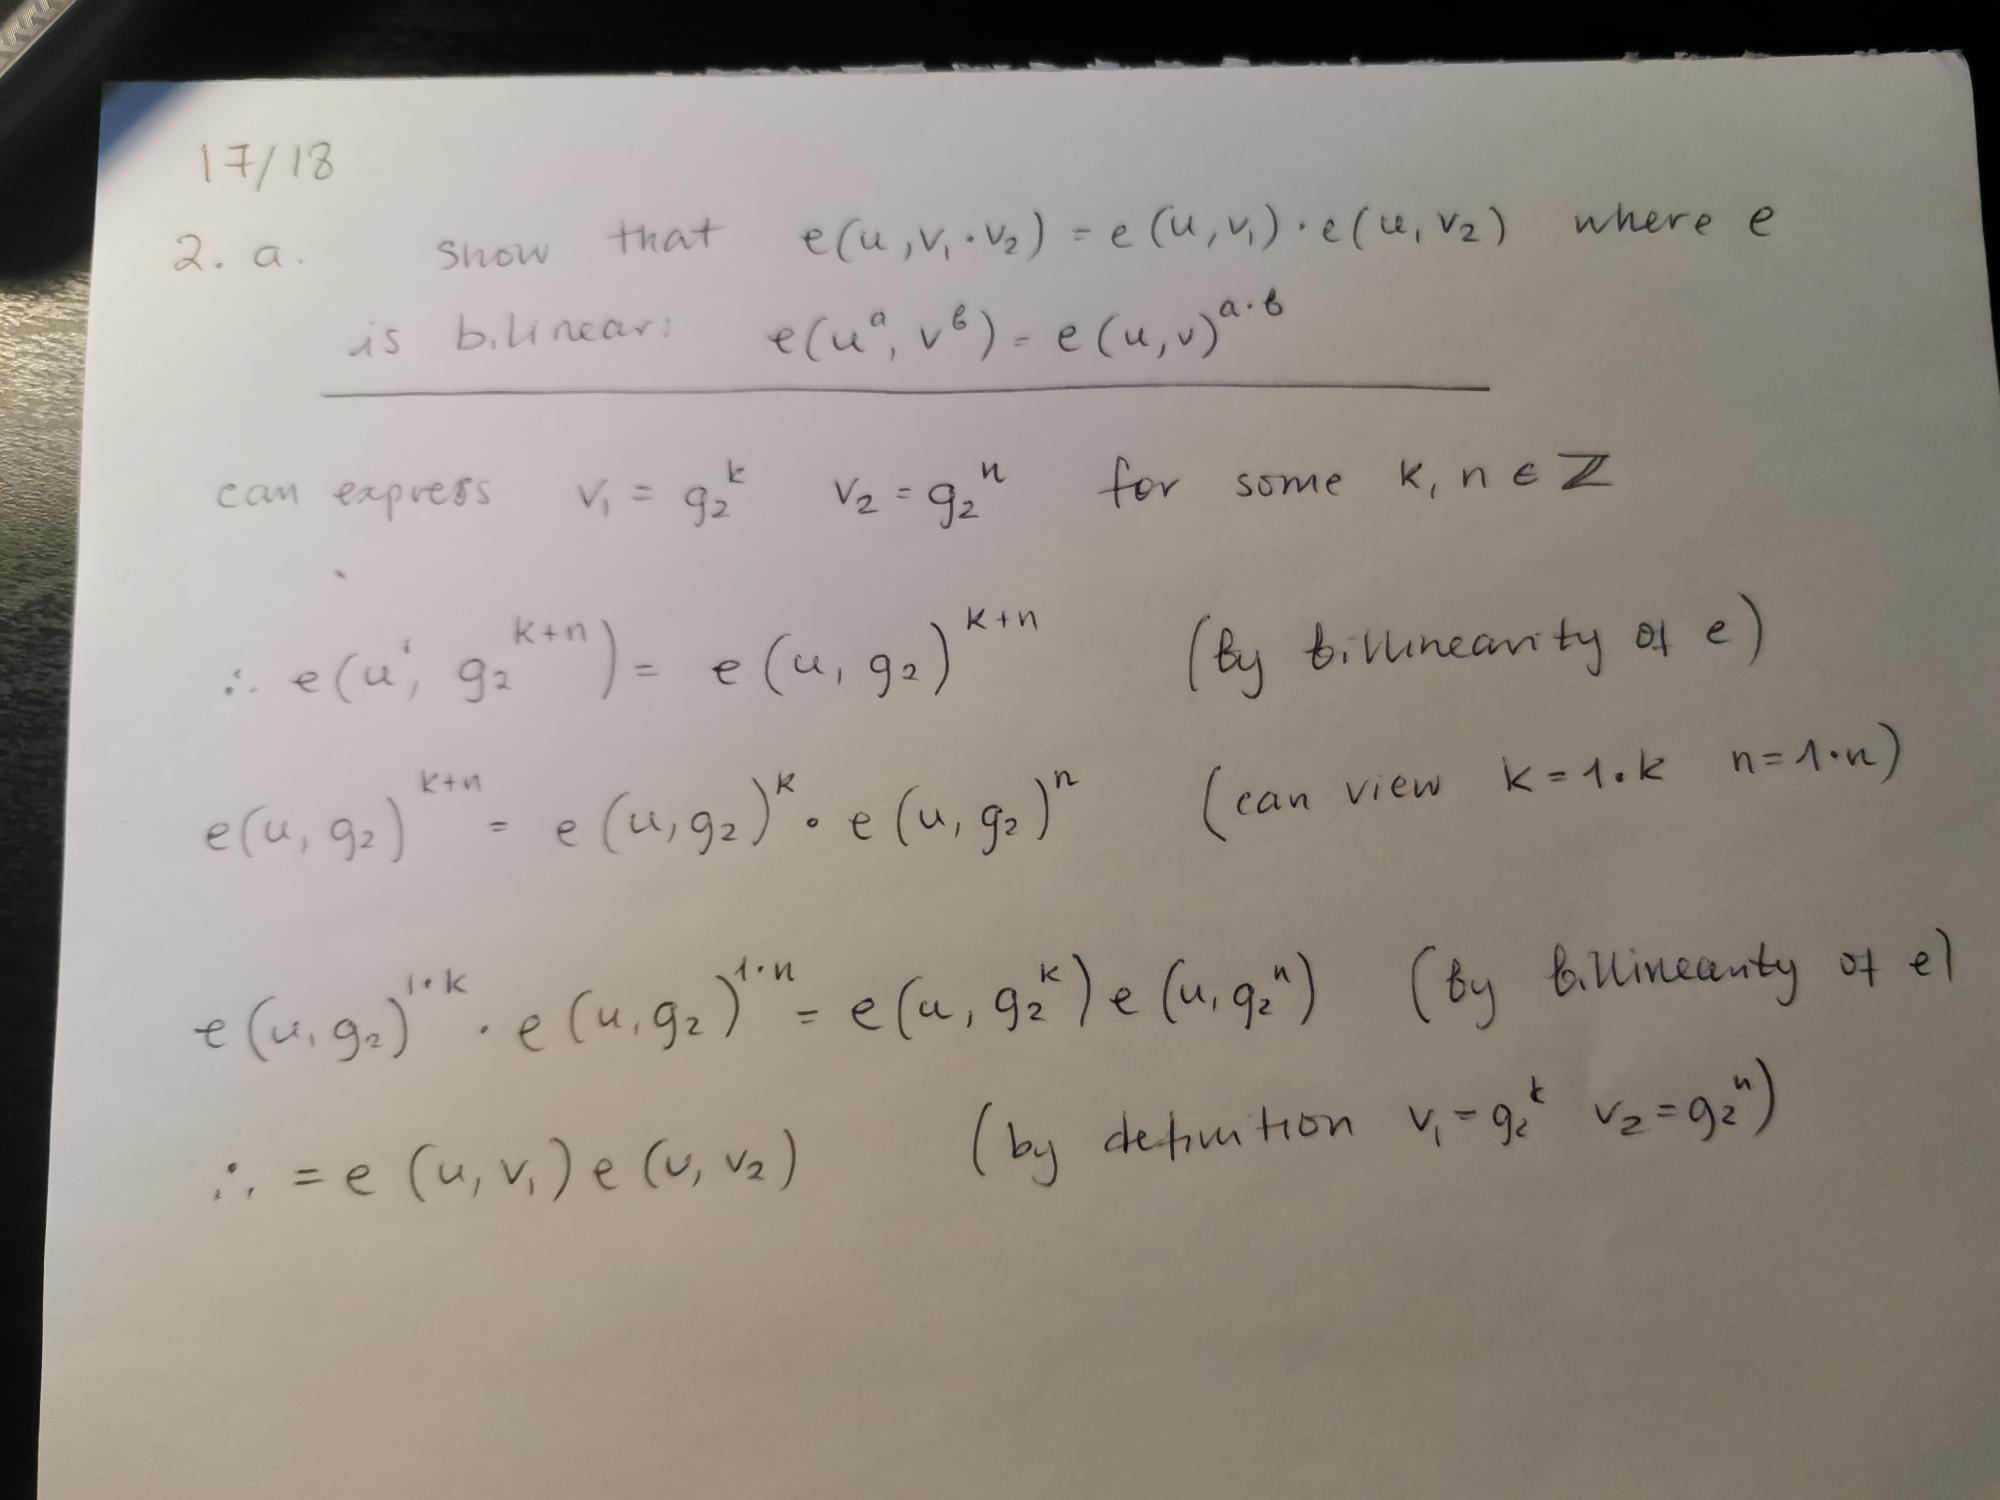 17/18
2. a. show that e(u, v₁·v₂) = e(u, v₁)·e(u, v₂) where e
is bilinear: e(uᵃ, vᵇ) = e(u,v)ᵃ·ᵇ
can express v₁ = g₂ᵏ v₂ = g₂ⁿ for some k, n ∈ ℤ
∴ e(u¹, g₂ᵏ⁺ⁿ) = e(u, g₂)ᵏ⁺ⁿ (by billinearity of e)
e(u, g₂)ᵏ⁺ⁿ = e(u, g₂)ᵏ · e(u, g₂)ⁿ (can view k = 1·k n = 1·n)
e(u, g₂)¹·ᵏ · e(u, g₂)¹·ⁿ = e(u, g₂ᵏ) e(u, g₂ⁿ) (by billinearity of e)
∴ = e(u, v₁) e(u, v₂) (by definition v₁ = g₂ᵏ v₂ = g₂ⁿ)